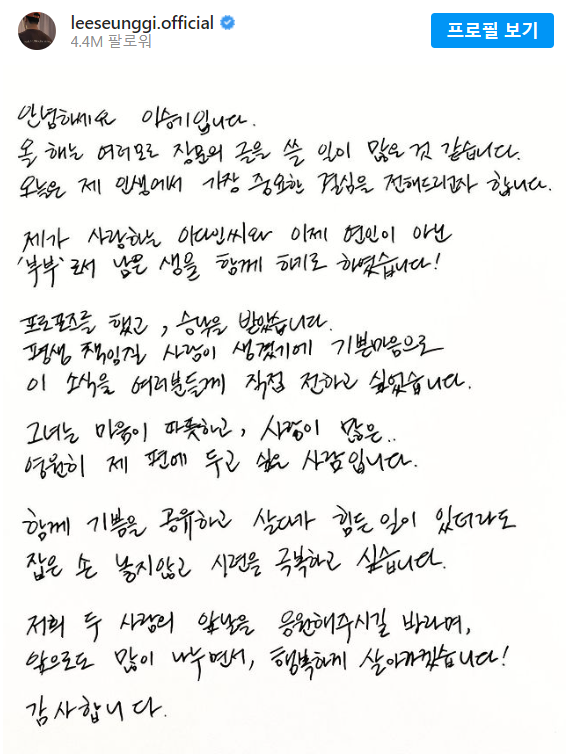 leeseunggi.official
4.4M 팔로워
프로필 보기
안녕하세요 이승기입니다.
올 해는 여러모로 장문의 글을 쓸 일이 많은 것 같습니다.
오늘은 제 인생에서 가장 중요한 결심을 전해드리고자 합니다.
제가 사랑하는 이다인씨와 이제 연인이 아닌
'부부'로서 남은 생을 함께 하기로 하였습니다!
프로포즈를 했고, 승낙을 받았습니다.
평생 책임질 사람이 생겼기에 기쁜마음으로
이 소식을 여러분들께 직접 전하고 싶었습니다.
그녀는 마음이 따뜻하고, 사랑이 많은..
영원히 제 편에 두고 싶은 사람입니다.
함께 기쁨을 공유하고 살다가 힘든 일이 있더라도
잡은 손 놓지않고 시련을 극복하고 싶습니다.
저희 두 사람의 앞날을 응원해주시길 바라며,
앞으로도 많이 나누면서, 행복하게 살아가겠습니다!
감사합니다.